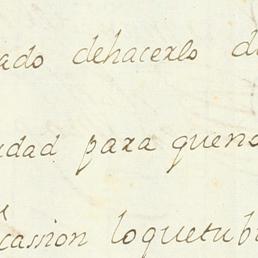 ado dehacerlo d
idad para queno
cassion loquetub